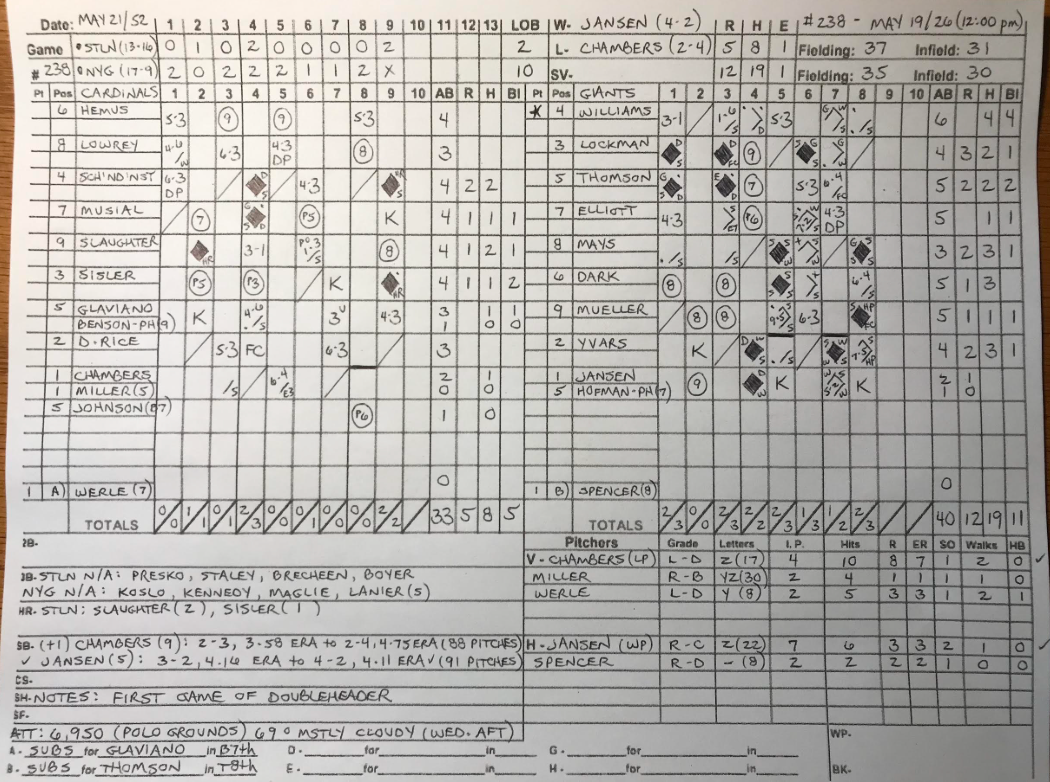 Date: MAY 21/52 1 2 3 4 5 6 7 8 9 10 11 12 13 LOB W- JANSEN (4-2) R H E #238 - MAY 19/26 (12:00 pm)
Game STLN (13-16) 0 1 0 2 0 0 0 0 2 2 L- CHAMBERS (2-4) 5 8 1 Fielding: 37 Infield: 31
#238 NYG (17-9) 2 0 2 2 2 1 1 2 X 10 SV- 12 19 1 Fielding: 35 Infield: 30
Pt Pos CARDINALS 1 2 3 4 5 6 7 8 9 10 AB R H BI Pt Pos GIANTS 1 2 3 4 5 6 7 8 9 10 AB R H BI
6 HEMUS 5-3 9 9 5-3 4 4 WILLIAMS 3-1 5-3 6 4 4
8 LOWREY 6-3 4-3 DP 8 3 3 LOCKMAN 9 4 3 2 1
4 SCH'ND'NST 6-3 DP 4-3 4 2 2 5 THOMSON 7 5-3 5 2 2 2
7 MUSIAL 7 P5 K 4 1 1 1 7 ELLIOTT 4-3 P6 4-3 DP 5 1 1
9 SLAUGHTER HR 3-1 8 4 1 2 1 8 MAYS 3 2 3 1
3 SISLER P5 P3 K HR 4 1 1 2 6 DARK 8 8 6-4 5 1 3
5 GLAVIANO K 3U 4-3 3 1 1 9 MUELLER 8 8 6-3 5 1 1 1
BENSON-PH(9) 1 0 0
2 D. RICE 5-3 FC 6-3 3 2 YVARS K 4 2 3 1
1 CHAMBERS 2 1 1 JANSEN 9 K K 2 1
1 MILLER (5) 0 0 5 HOFMAN-PH(7) 1 0
5 JOHNSON (B7) P6 1 0
1 A) WERLE (7) 0 1 B) SPENCER (8) 0
TOTALS 0/0 1/1 0/1 2/3 0/0 0/1 0/0 0/0 2/2 33 5 8 5 TOTALS 2/3 0/0 2/3 2/2 2/3 1/3 1/2 2/3 40 12 19 11
2B- Pitchers Grade Letters I.P. Hits R ER SO Walks HB
V- CHAMBERS (LP) L-D Z (17) 4 10 8 7 1 2 0 ✓
3B- STLN N/A: PRESKO, STALEY, BRECHEEN, BOYER MILLER R-B YZ (30) 2 4 1 1 1 1 0
NYG N/A: KOSLO, KENNEDY, MAGLIE, LANIER (S) WERLE L-D Y (8) 2 5 3 3 1 2 1
HR- STLN: SLAUGHTER (2), SISLER (1)
SB- (+1) CHAMBERS (9): 2-3, 3.58 ERA to 2-4, 4.75 ERA (88 PITCHES) H- JANSEN (WP) R-C Z (22) 7 6 3 3 2 1 0 ✓
✓ JANSEN (5): 3-2, 4.16 ERA to 4-2, 4.11 ERA ✓ (91 PITCHES) SPENCER R-D - (8) 2 2 2 2 1 0 0
CS-
SH- NOTES: FIRST GAME OF DOUBLEHEADER
SF-
ATT: 6,950 (POLO GROUNDS) 69° MSTLY CLOUDY (WED. AFT) WP-
A- SUBS for GLAVIANO in B7th D- for in G- for in
B- SUBS for THOMSON in T8th E- for in H- for in BK-